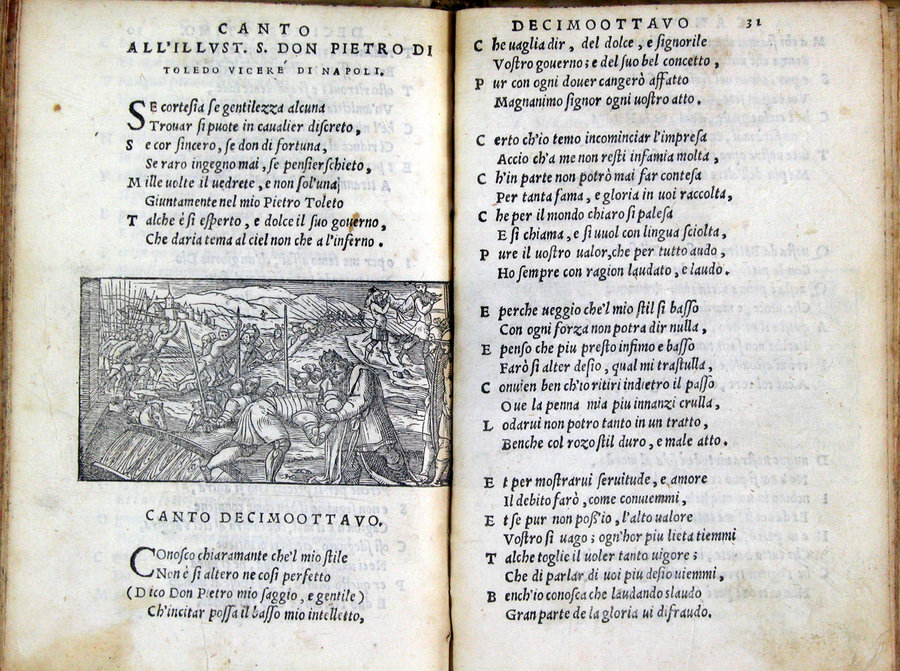 CANTO
ALL'ILLVST. S. DON PIETRO DI
TOLEDO VICERE DI NAPOLI,
SE cortesia se gentilezza alcuna
Trouar si puote in caualier discreto,
Se cor sincero, se don di fortuna,
Se raro ingegno mai, se pensier schieto,
Mille uolte il uedrete, e non sol'una;
Giuntamente nel mio Pietro Toleto
Talche è si esperto, e dolce il suo gouerno,
Che daria tema al ciel non che a l'inferno.
CANTO DECIMOOTTAVO.
COnosco chiaramante che'l mio stile
Non è si altero ne cosi perfetto
(Dico Don Pietro mio saggio, e gentile)
Ch'incitar possa il basso mio intelletto,
DECIMOOTTAVO 31
Che uaglia dir, del dolce, e signorile
Vostro gouerno; e del suo bel concetto,
Pur con ogni douer cangerò affatto
Magnanimo signor ogni uostro atto.
Certo ch'io temo incominciar l'impresa
Accio ch'a me non resti infamia molta,
Ch'in parte non potrò mai far contesa
Per tanta fama, e gloria in uoi raccolta,
Che per il mondo chiaro si palesa
E si chiama, e si uuol con lingua sciolta,
Pure il uostro ualor, che per tutto audo,
Ho sempre con ragion laudato, e laudo.
E perche ueggio che'l mio stil si basso
Con ogni forza non potra dir nulla,
E penso che piu presto infimo e basso
Farò si alter desio, qual mi trastulla,
Conuien ben ch'io ritiri indietro il passo
Oue la penna mia piu innanzi crulla,
Lodarui non potro tanto in un tratto,
Benche col rozo stil duro, e male atto.
Et per mostrarui seruitude, e amore
Il debito farò, come conuiemmi,
Et se pur non poss'io, l'alto ualore
Vostro si uago; ogn'hor piu lieta tiemmi
Talche toglie il uoler tanto uigore;
Che di parlar di uoi piu desio uiemmi,
Bench'io conosca che laudando slaudo
Gran parte de la gloria ui difraudo.